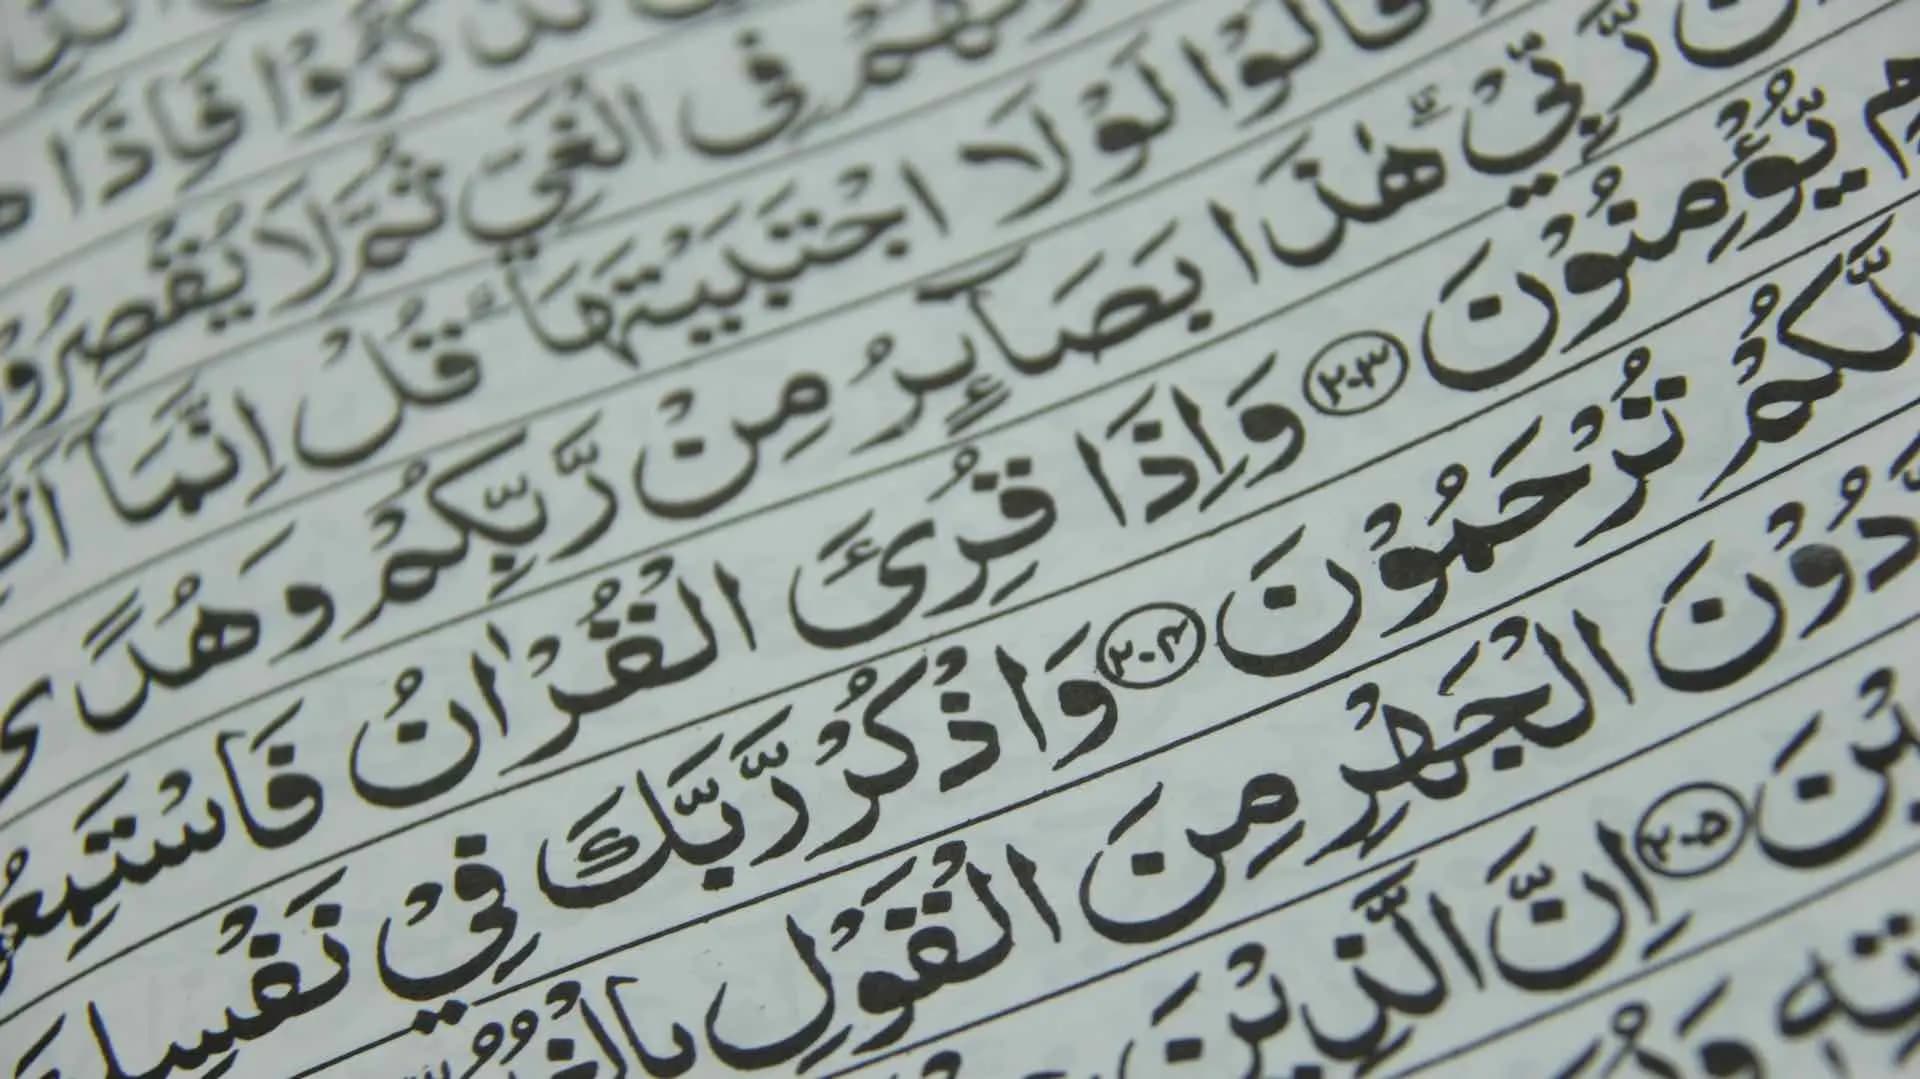 فَاِذَا
فِى الْغَيِّ ثُمَّ لَا يُقْصِرُوْ
قَالُوْا لَوْلَا اجْتَبَيْتَهَا ۗ قُلْ اِنَّمَآ
رَّبِّيْ ۗ هٰذَا بَصَآئِرُ مِنْ رَّبِّكُمْ وَهُدًى
يُّؤْمِنُوْنَ ٢٠٣ وَاِذَا قُرِئَ الْقُرْاٰنُ فَاسْتَمِعُ
لَّكُمْ تُرْحَمُوْنَ ٢٠٤ وَاذْكُرْ رَّبَّكَ فِيْ نَفْسِكَ
دُوْنَ الْجَهْرِ مِنَ الْقَوْلِ بِالْغُدُ
يْنَ ٢٠٥ اِنَّ الَّذِيْنَ